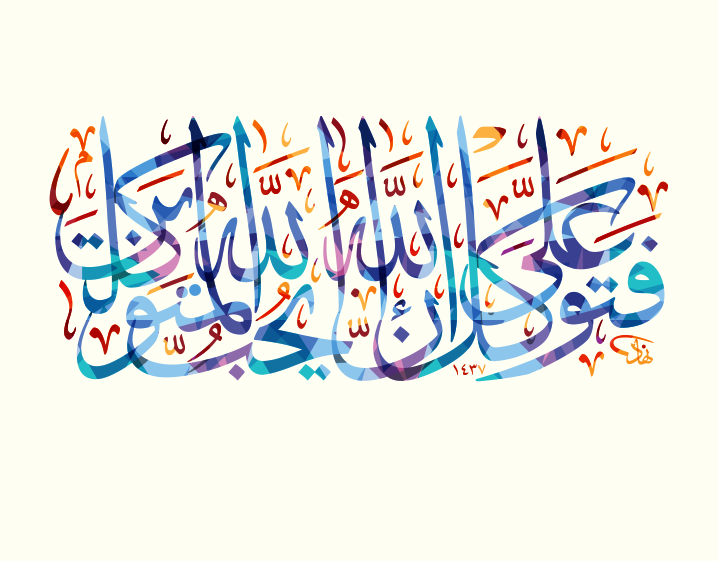 فتوكل على الله إن الله يحب المتوكلين
١٤٣٧
نهاد